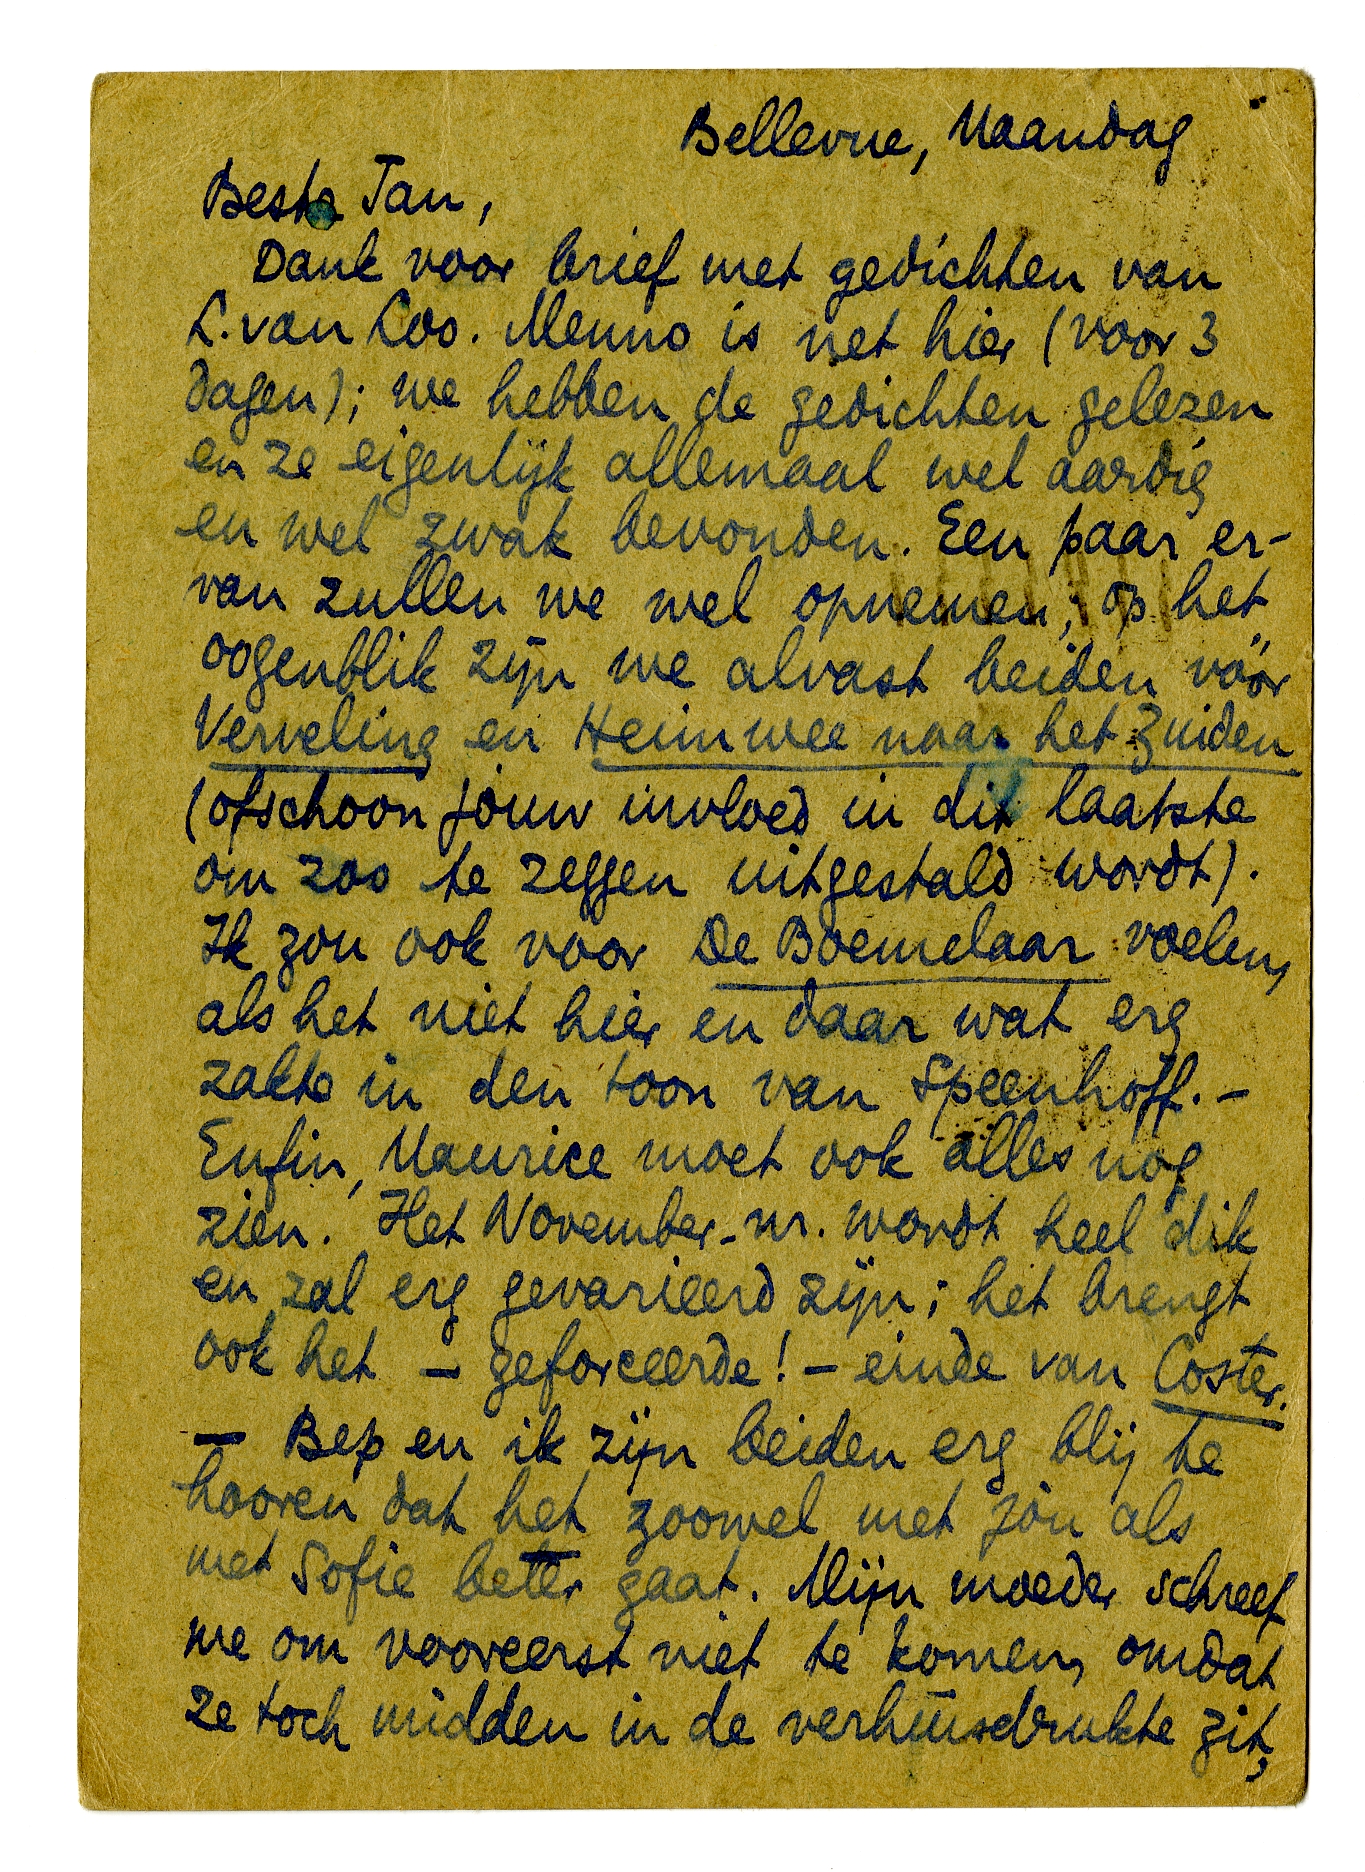 Bellevue, Maandag
Beste Jan,
Dank voor brief met gedichten van
L. van Loo. Menno is net hier (voor 3
dagen); we hebben de gedichten gelezen
en ze eigenlijk allemaal wel aardig
en wel zwak bevonden. Een paar er-
van zullen we wel opnemen; op het
oogenblik zijn we alvast beiden vóór
Verveling en Heimwee naar het Zuiden
(ofschoon jóuw invloed in dit laatste
om zoo te zeggen uitgestald wordt).
Ik zou ook voor De Boemelaar voelen,
als het niet hier en daar wat erg
zakte in den toon van Speenhoff. —
Enfin, Maurice moet ook alles nog
zien. Het November-nr. wordt heel dik
en zal erg gevarieerd zijn; het brengt
ook het — geforceerde! — einde van Coster.
— Bep en ik zijn beiden erg blij te
hooren dat het zoowel met jou als
met Sofie beter gaat. Mijn moeder schreef
me om vooreerst niet te komen, omdat
ze toch midden in de verhuisdrukte zit,